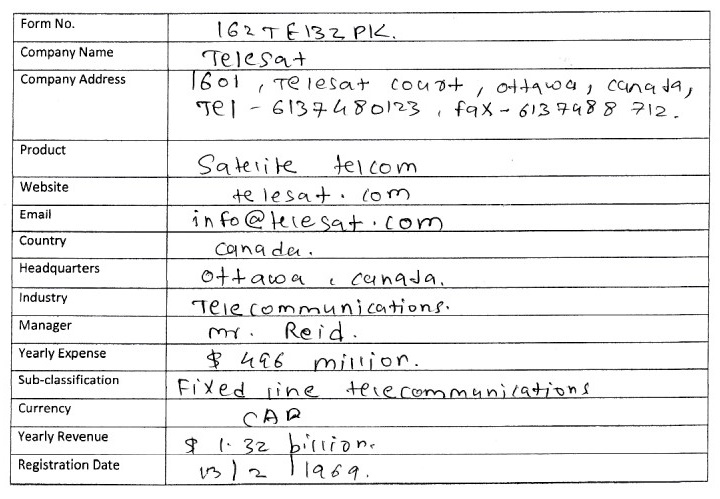 Form No. 162TE132PK.
Company Name Telesat
Company Address 1601, Telesat court, ottawa, canada,
Tel - 6137480123, fax - 6137488712.
Product Satelite telcom
Website telesat.com
Email info@telesat.com
Country canada.
Headquarters ottawa, canada.
Industry Telecommunications.
Manager mr. Reid.
Yearly Expense $ 496 million.
Sub-classification Fixed line telecommunications
Currency CAD
Yearly Revenue $ 1.32 billion.
Registration Date 13/2/1969.